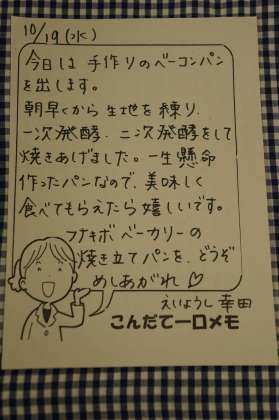 10/19(水)
今日は 手作りのベーコンパン
を出します。
朝早くから生地を練り、
一次発酵、二次発酵をして
焼きあげました。一生懸命
作ったパンなので、美味しく
食べてもらえたら嬉しいです。
フナキボベーカリーの
焼き立てパンを、どうぞ
めしあがれ♡
えいようし 幸田
こんだて一口メモ